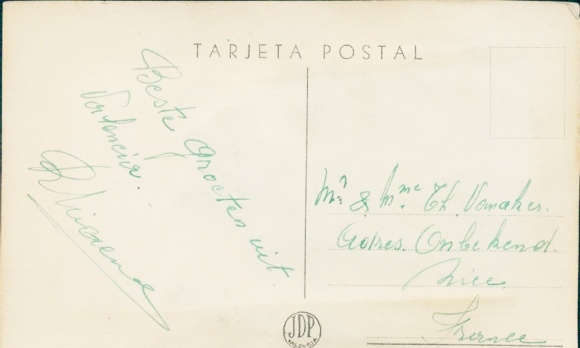 TARJETA POSTAL
Beste Groeten uit
Valencia.
Mr & Mme Th. Vanakes.
Adres. Onbekend.
Nice.
France
JDP
VALENCIA